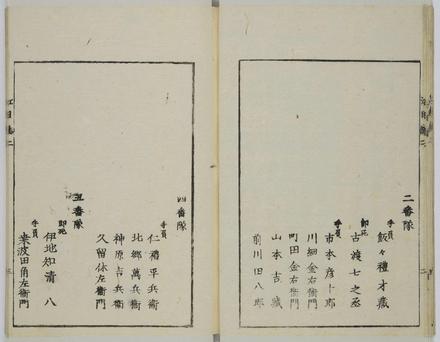 二番隊
手負
飯々禮才藏
即死
古渡七之丞
手負
市本彦十郎
川細金右衛門
町田金右衛門
山本吉藏
前川田八郎
四番隊
手負
仁禮平兵衛
北郷萬兵衛
神原吉兵衛
久留休左衛門
五番隊
即死
伊地知清八
手負
桒波田角左衛門